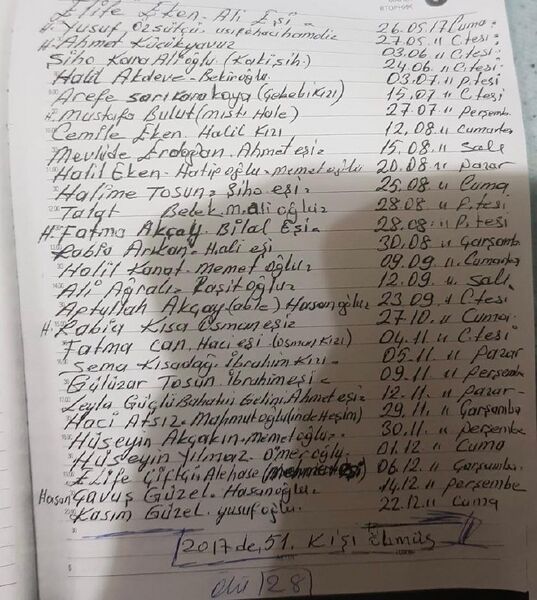 ВТОРНИК
Elife Eken. Ali Eşi. 26.05.17 Cuma.
H. Yusuf Özsütçü 27.05.11 C.tesi
H. Ahmet Küçükyavuz 03.06 11 C.tesi
Siho Kara Alioğlu (Kaki, sih.) 24.06 11 C.tesi
Halil Akdeve - Bekiroğlu 03.07 11 P.tesi
Arefe sarıkarakaya (Gebeli Kızı) 15.07 11 C.tesi
H. Mustafa Bulut (mıstı Hale) 27.07 11 Perşemb
Cemile Eken. Halil Kızı 12.08 11 Cumartes
Mevlüde Erdoğan. Ahmet eşi 15.08 11 Salı
Halil Eken - Hatipoğlu - Memetoğlu 20.08 11 Pazar
Halime Tosun. Siho eşi. 25.08 11 Cuma
Talat Belek. M.alioğlu 28.08 11 P.tesi
H. Fatma Akçay Bilal Eşi. 28.08 11 P.tesi
Rabia Arıkan. Hali eşi 30.08 11 Çarşamb
Halil Kanat - Memetoğlu 09.09 11 Cumartes
Ali Ağralı. Raşitoğlu 12.09. 11 Salı
Aptullah Akçay (able) Hasanoğlu 23.09 11 C.tesi
H. Rabia Kısa Osman eşi 27.10 11 Cuma
Fatma Can. Haci eşi. (osman Kızı) 04.11 11 C.tesi
Sema Kısadağ. İbrahim Kızı. 05.11 11 Pazar
Gülüzar Tosun. İbrahim eşi. 09.11 11 Perşemb
Leyla Güçlü Bahattin Gelini, Ahmet eşi 12.11. 11 Pazar
Haci Atsız. Mahmutoğlu 29.11 11 Çarşamba
Hüseyin Akçakın. Memetoğlu. 30.11. 11 perşembe
Hüseyin Yılmaz Ömeroğlu. 01.12 11 Cuma
Elife Çiftçi 06.12 11 Çarşamba
Hasan Çavuş Güzel. Hasanoğlu. 14.12 11 perşembe
Kasım Güzel. yusufoğlu. 22.12. 11 Cuma
2017 de, 51. Kişi Ölmüş
28